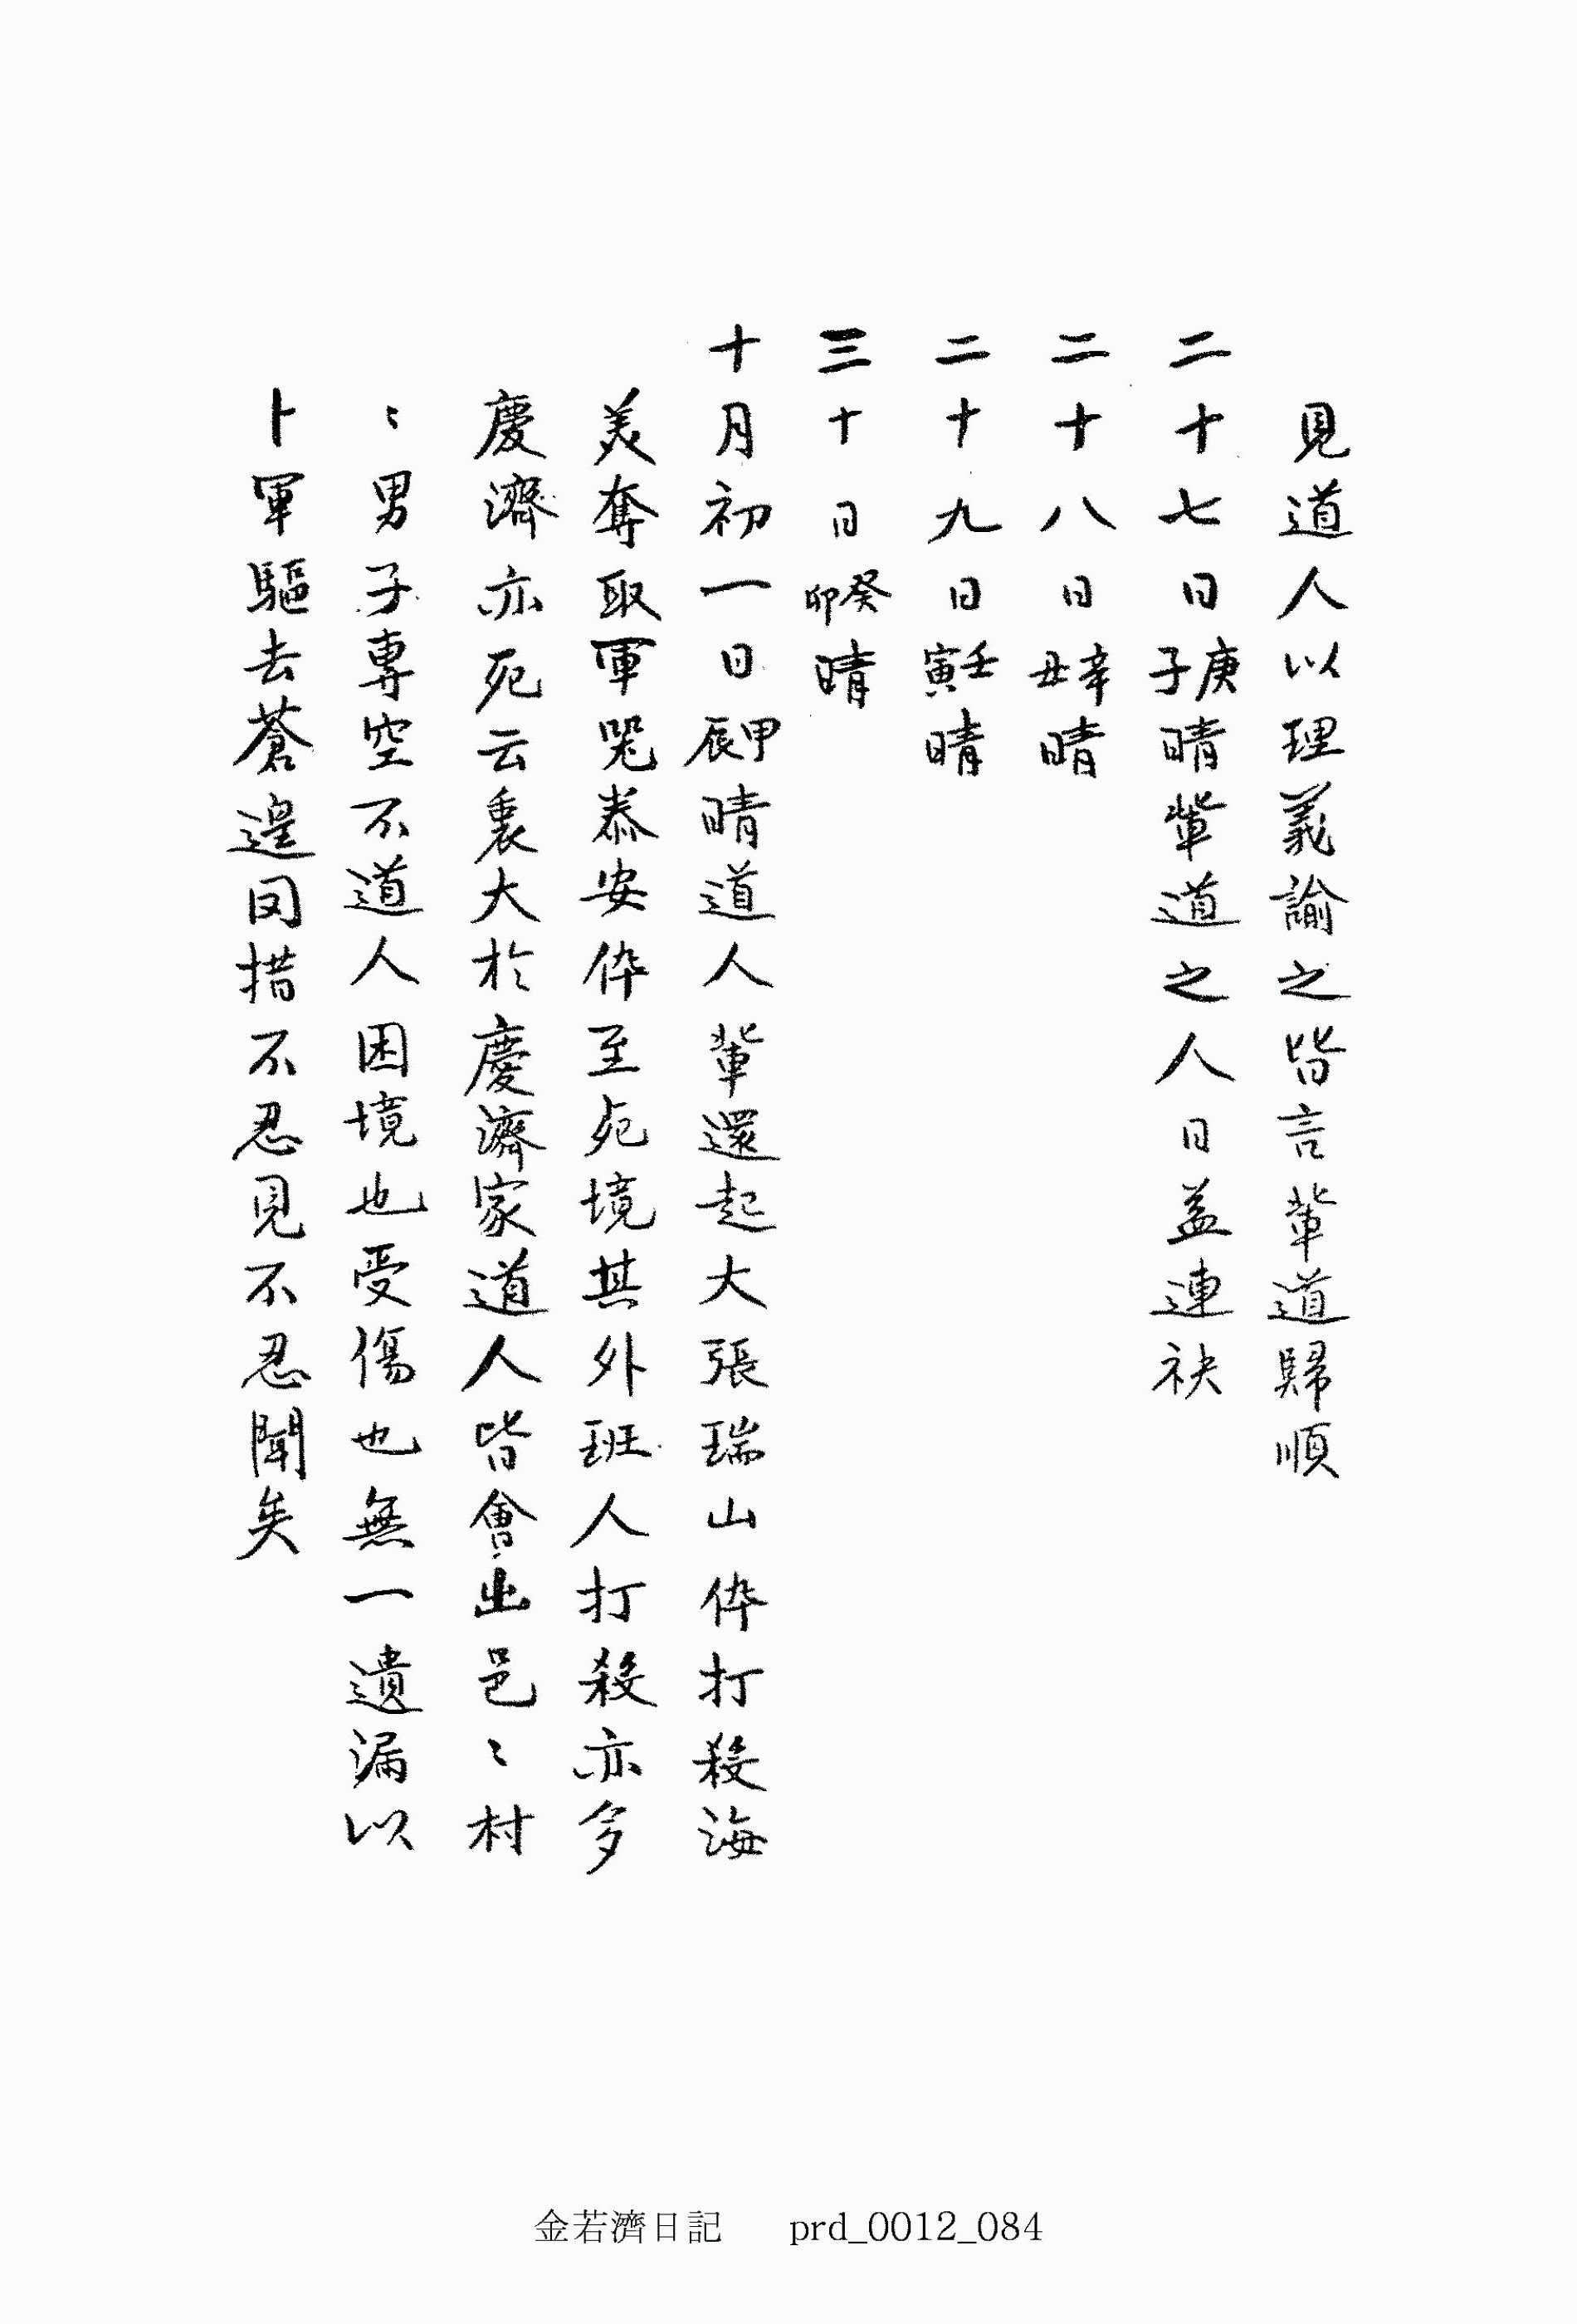 見道人以理義諭之皆言軰道歸順
二十七日庚子晴軰道之人日益連袂
二十八日辛丑晴
二十九日壬寅晴
三十日癸卯晴
十月初一日甲辰晴道人軰還起大張瑞山伜打殺海
美奪取軍兇泰安伜至死境其外班人打殺亦多
慶濟亦死云裏大於慶濟家道人皆會出邑〻村
〻男子專空不道人困境也受傷也無一遺漏以
卜軍驅去蒼遑罔措不忍見不忍聞矣
金若濟日記 prd_0012_084